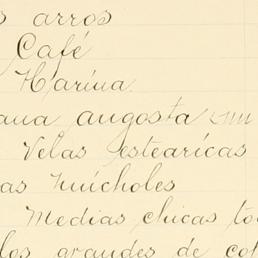 s arros
Café
Harina
ana angosta
Velas estearicas
as huicholes
Medias chicas to
los grandes de co